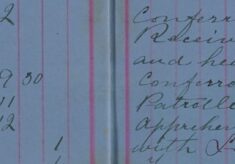 2 Conferr
Receive
and he
9 30 Conferre
11 Patrolle
12 apprehen
1 with
1